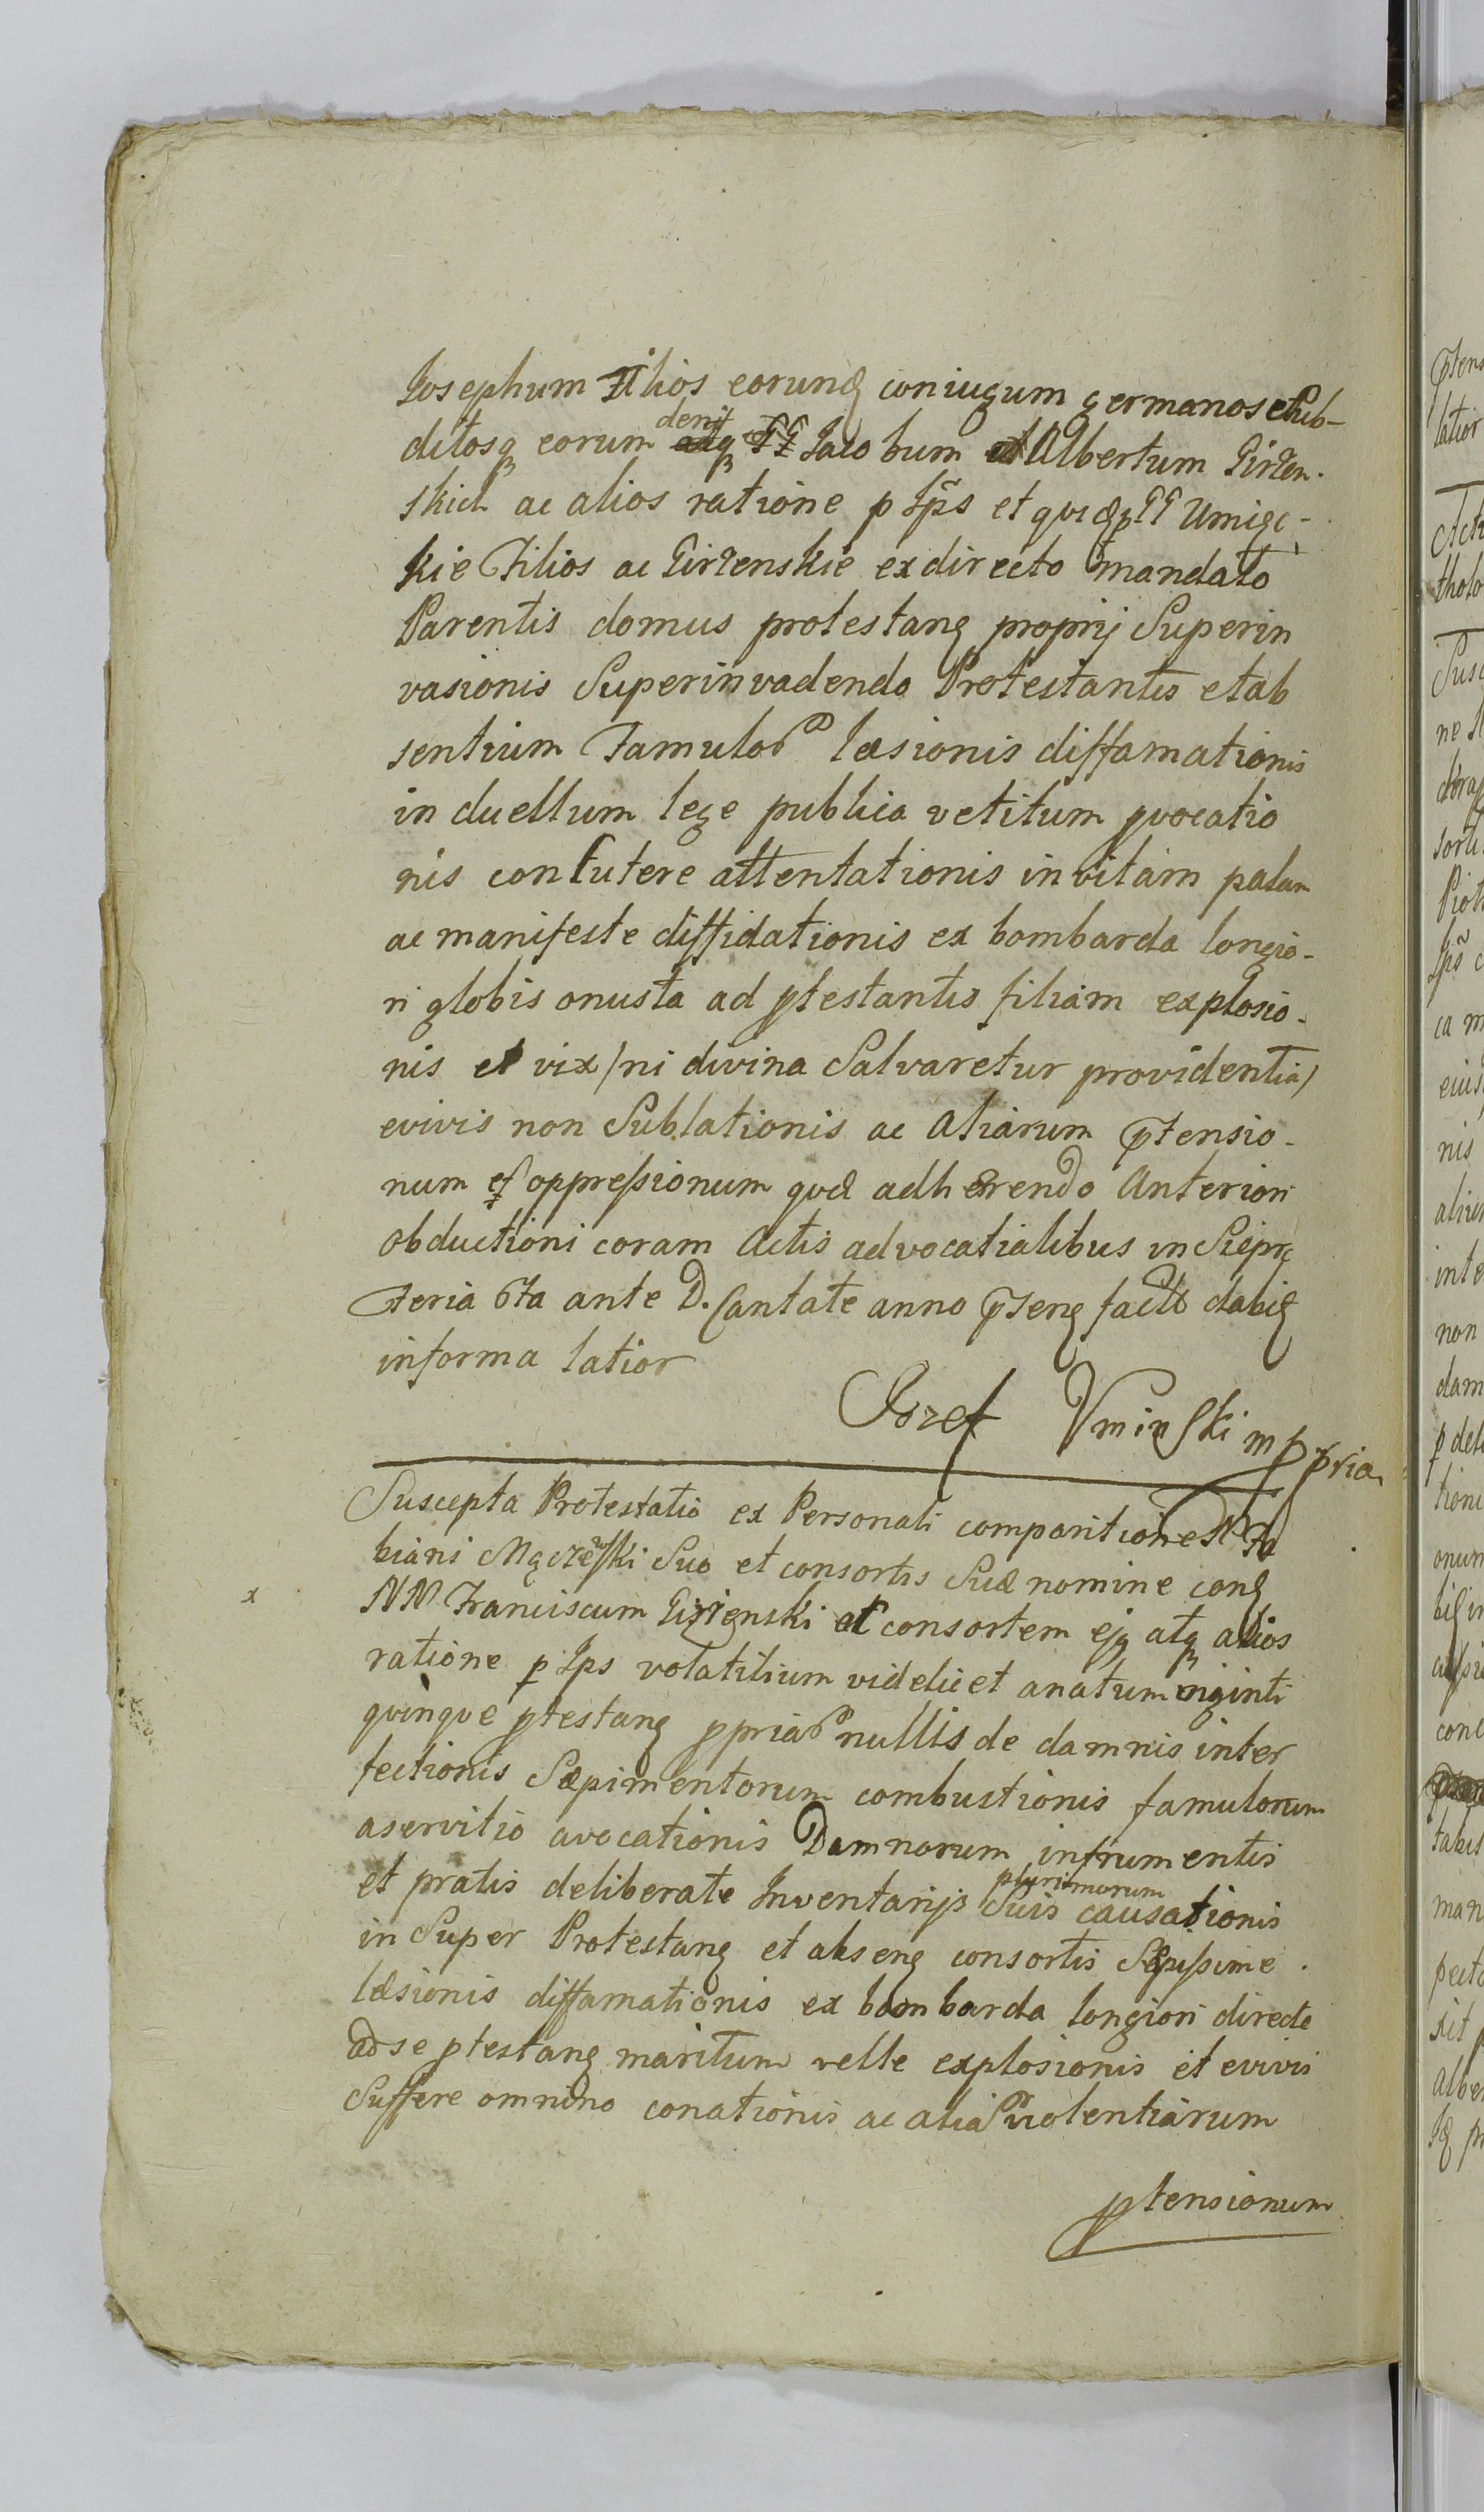 Josephum Filios eorund coniugum germanos et Sub-
ditosq eorum deniq GG Jacobum et Albertum Girzen-
skich ac alios ratione p Ips et quidp GG Umięc-
kie Filios ac Girzenskie ex directo mandato
Parentis domus protestang proprij Superin
vasionis Superinvadendo Protestantis et ab
sentium Famulor læsionis diffamationis
in duellum lege publica vetitum pvocatio
nis conlutere attentationis in vitam palam
ac manifeste diffidationis ex bombarda longio-
ri globis onusta ad ptestantis filiam explosio-
nis et vix /ni divina Salvaretur providentia/
evivis non Sublationis ac aliarum ptensio-
num et oppressionum qvæ adhærendo Anteriori
obductioni coram Actis advocatialibus in Sieprc
Feria 6ta ante D. Cantate anno pseng facto dabit
informa latior
Jozef Vminski mppria
Suscepta Protestatio ex Personali comparitione N Fa
biani Mączeski Suo et consortis Suæ nomine cong
NN Franciscum Girzenski et consortem ejq atq alios
ratione p Ips volatilium videlicet anatum viginti
quinqve ptestang ppriar nullis de damnis inter
fectionis Sæpimentorum combustionis famulorum
aservitio avocationis Damnorum infrumentis
et pratis deliberate Inventarijs Suis plurimorum causationis
in Super Protestang et abseng consortis Sæpissime
læsionis diffamationis ex bombarda longiori directe
ad se ptestang maritum velle explosionis et evivis
Suffere omnino conationis ac aliar violentiarum
ptensionum